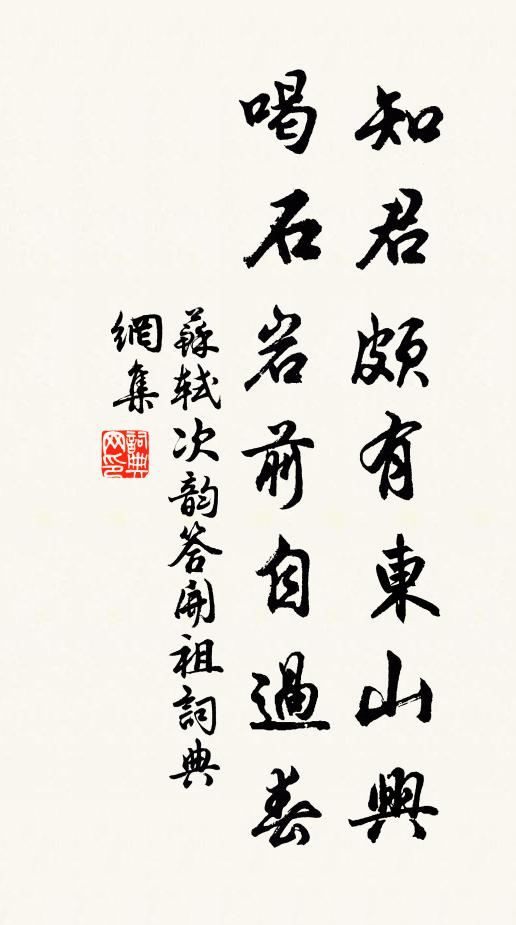 知君頗有東山興
喝石岩前自過春
蘇軾次韵答開祖詞典
網集
詞典网印